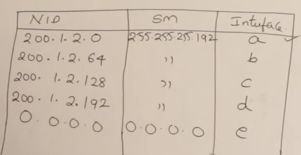 NID SM Interface
200.1.2.0 255.255.255.192 a
200.1.2.64 ,, b
200.1.2.128 ,, c
200.1.2.192 ,, d
0.0.0.0 0.0.0.0 e